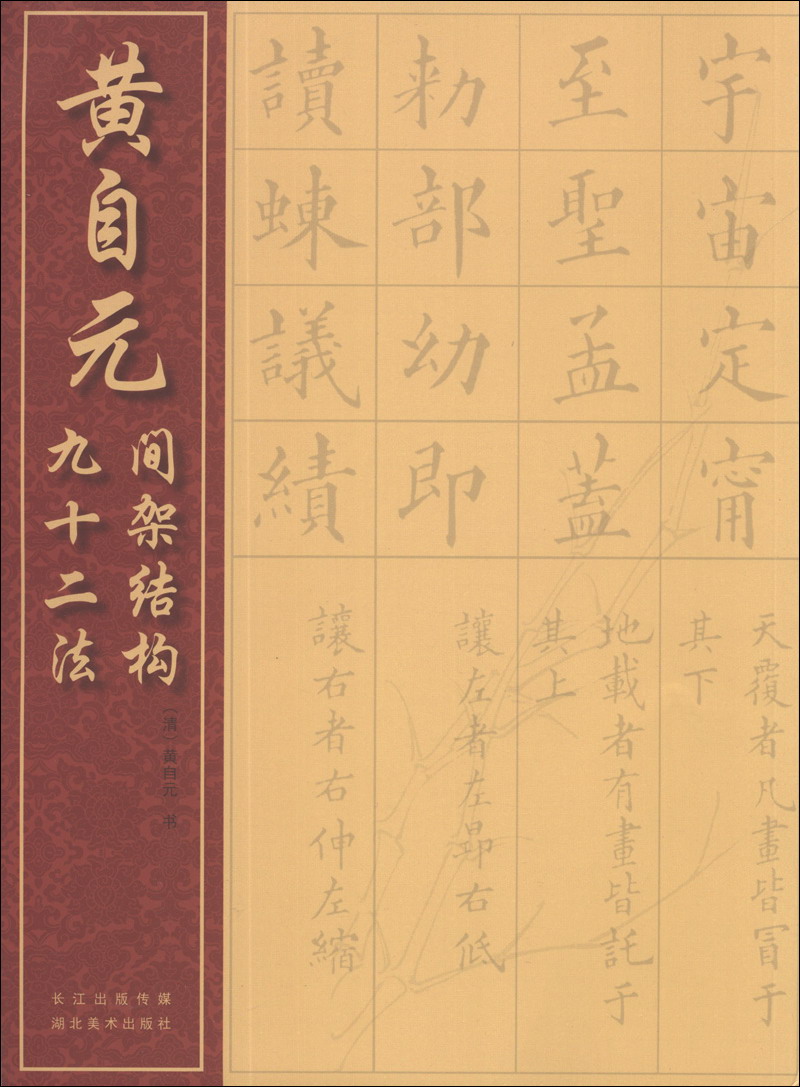 黄自元
间架结构
九十二法
（清）黄自元 书
长江出版传媒
湖北美术出版社
宇宙定甯
天覆者凡畫皆冒于
其下
至聖孟蓋
地載者有畫皆託于
其上
勅部幼即
讓左者左昻右低
讀蝀議績
讓右者右伸左縮